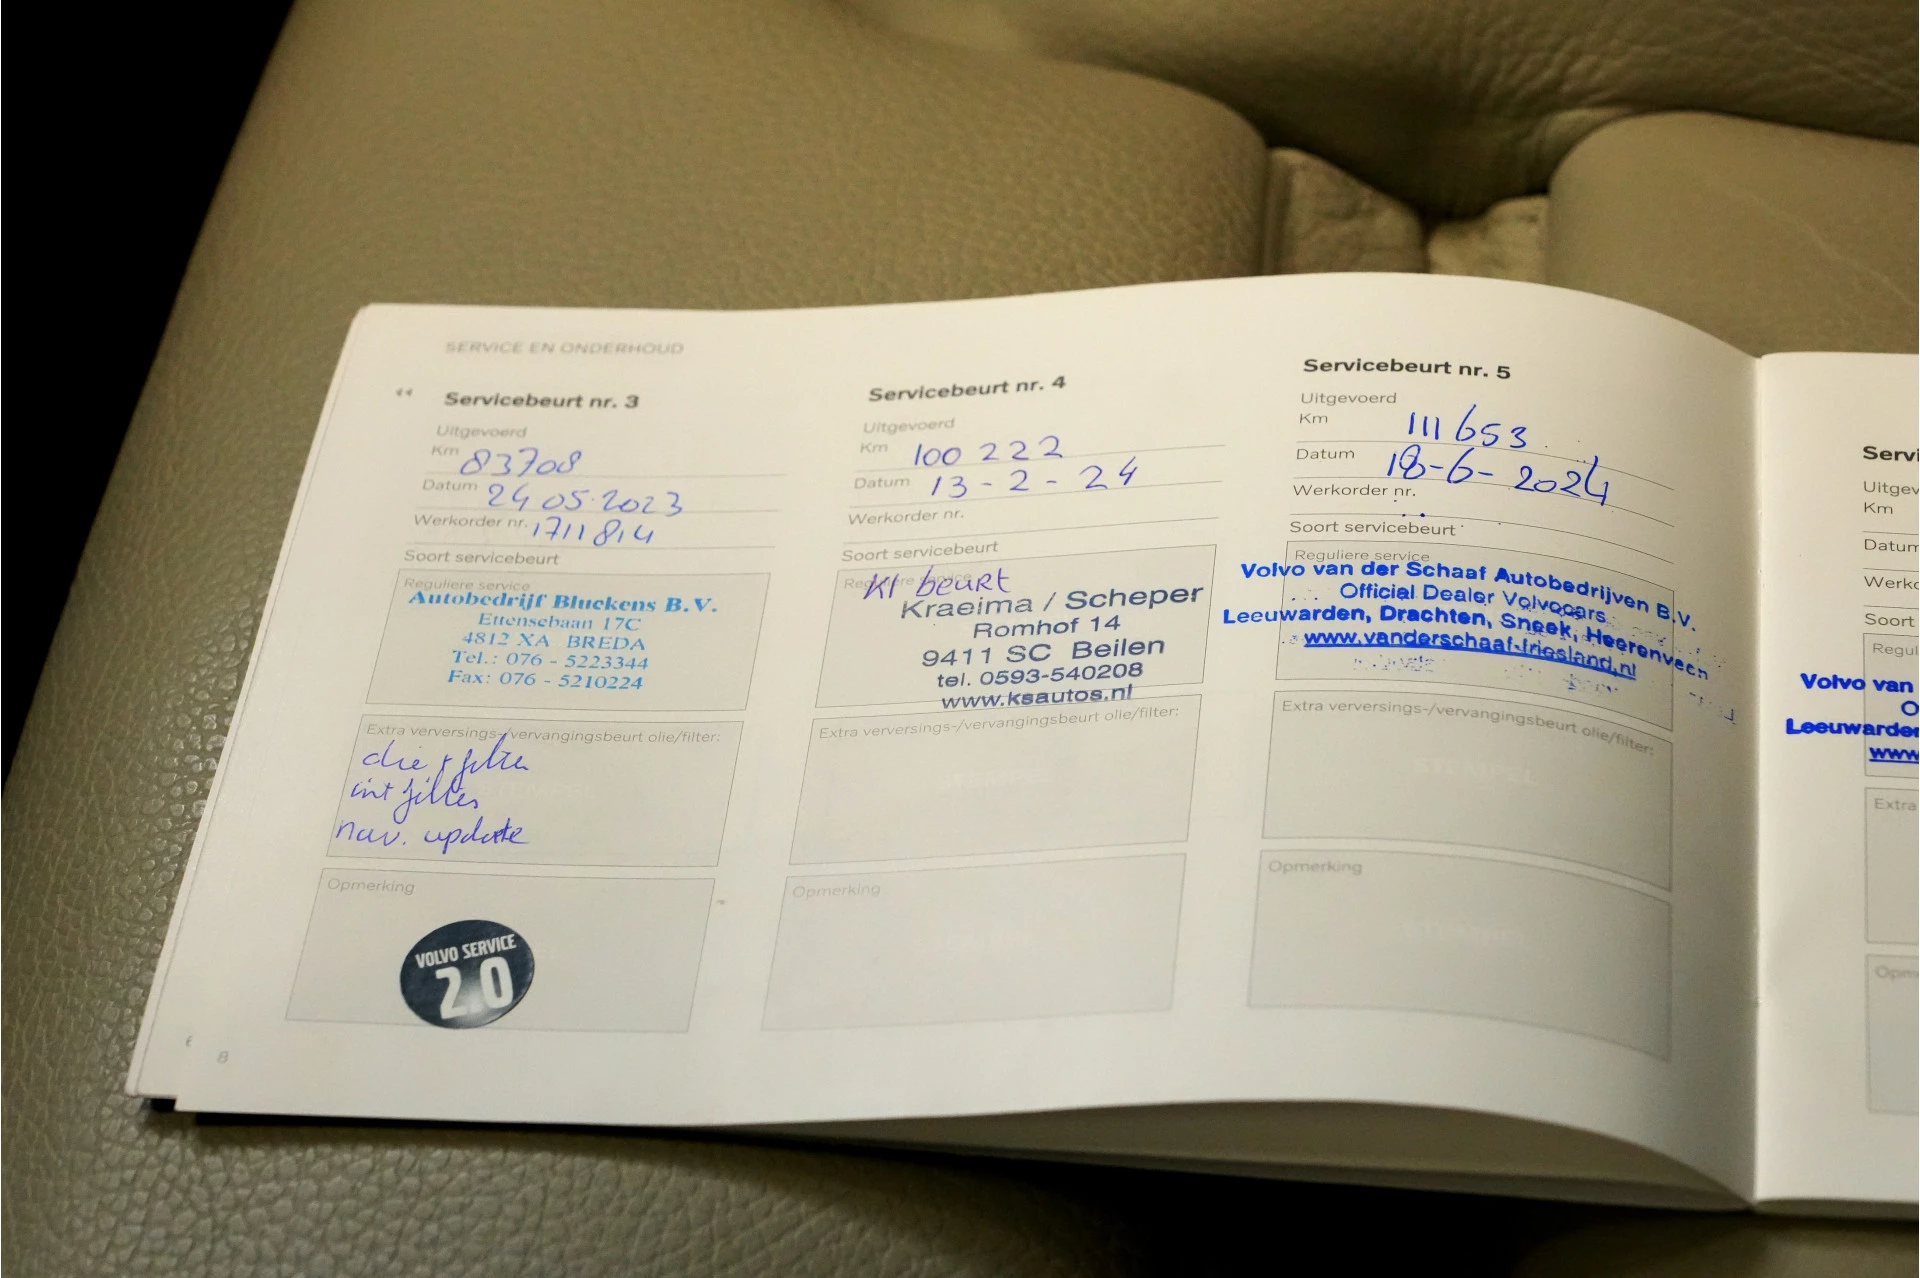 SERVICE EN ONDERHOUD
Servicebeurt nr. 3
Uitgevoerd
Km 83708
Datum 24 05·2023
Werkorder nr. 1711814
Soort servicebeurt
Reguliere service
Autobedrijf Bluekens B.V.
Ettensebaan 17C
4812 XA BREDA
Tel.: 076 - 5223344
Fax: 076 - 5210224
Extra verversings-/vervangingsbeurt olie/filter:
olie + filter
int filter
nav. update
Opmerking
VOLVO SERVICE
2.0
8
Servicebeurt nr. 4
Uitgevoerd
Km 100 222
Datum 13 - 2 - 24
Werkorder nr.
Soort servicebeurt
Reguliere service
Kl beurt
Kraeima / Scheper
Romhof 14
9411 SC Beilen
tel. 0593-540208
www.ksautos.nl
Extra verversings-/vervangingsbeurt olie/filter:
STEMPEL
Opmerking
Servicebeurt nr. 5
Uitgevoerd
Km 111 653
Datum 18-6-2024
Werkorder nr.
Soort servicebeurt
Reguliere service
Volvo van der Schaaf Autobedrijven B.V.
Official Dealer Volvocars
Leeuwarden, Drachten, Sneek, Heerenveen
www.vanderschaaf-friesland.nl
Extra verversings-/vervangingsbeurt olie/filter:
STEMPEL
Opmerking
Servi
Uitgev
Km
Datum
Werko
Soort
Regul
Volvo van
O
Leeuwarden
www
Extra
Opm